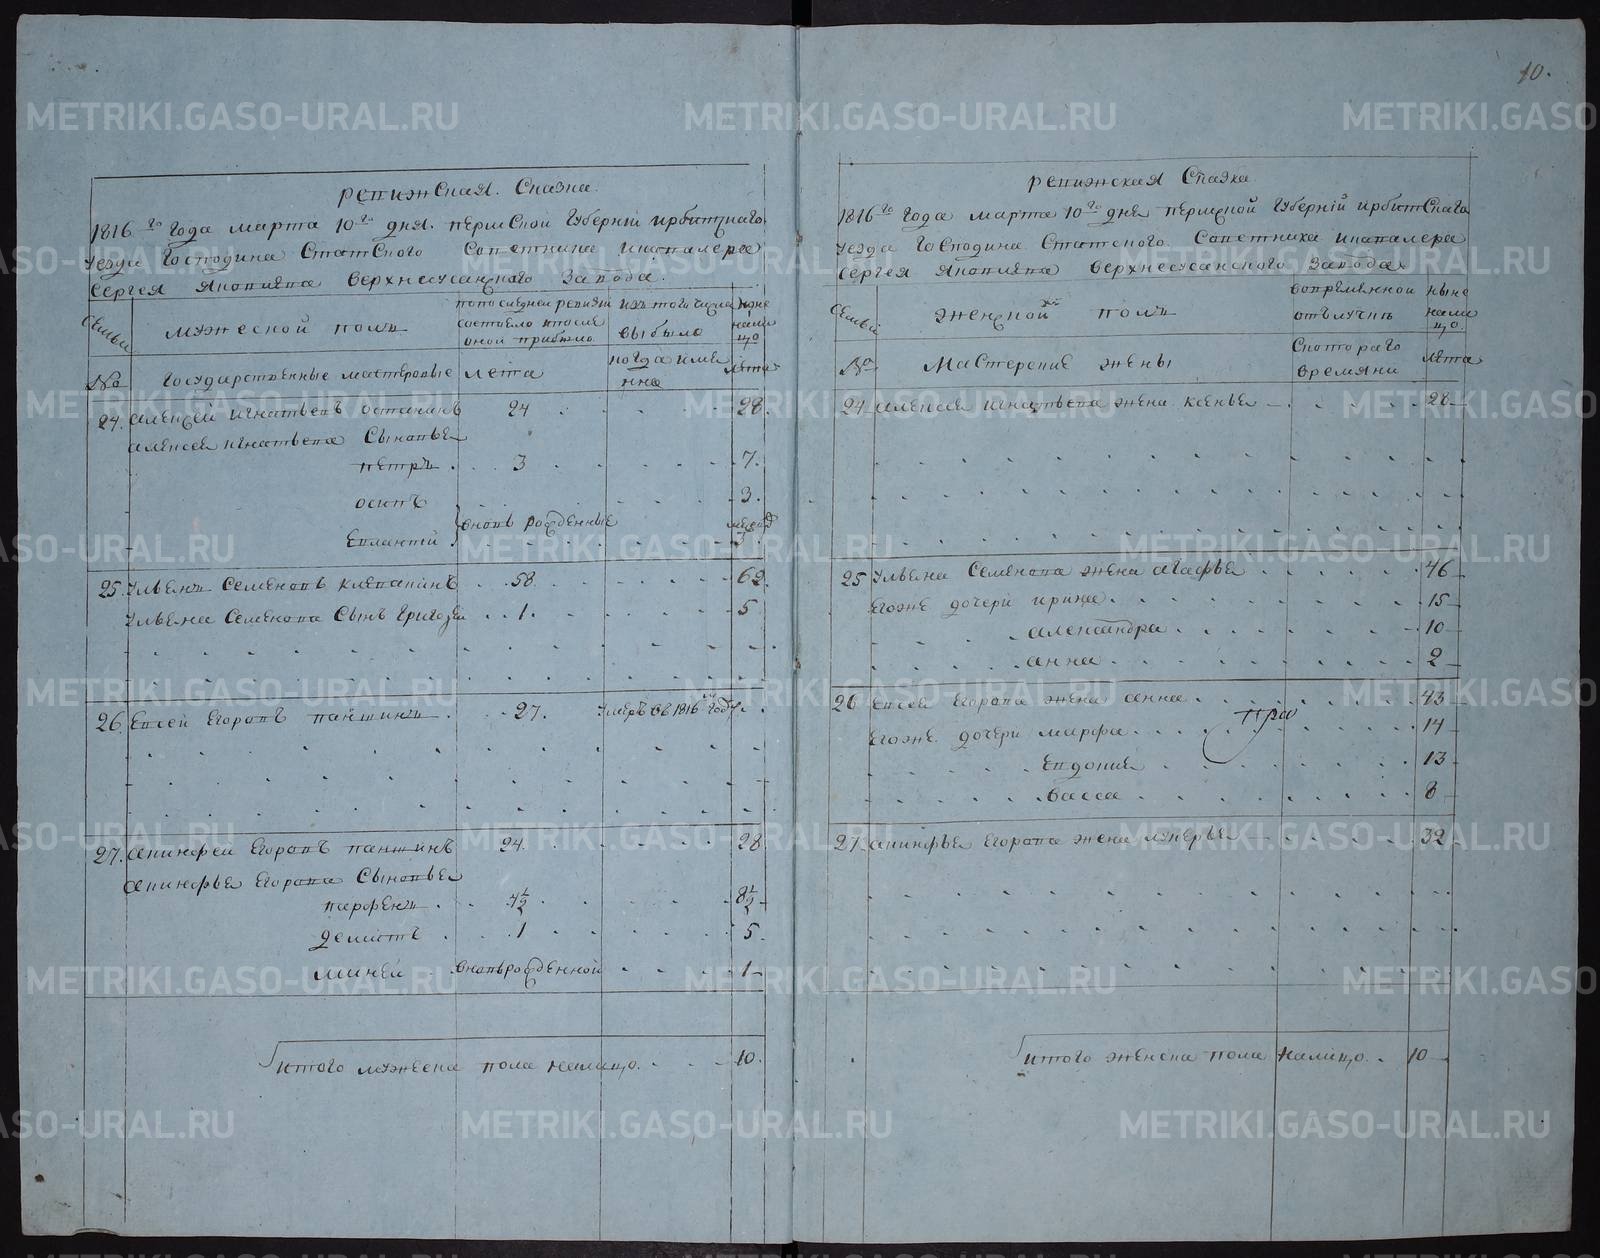 10.
Ревижская. Сказка.
1816го Года марта 10го дня. пермской Губернiй ирбитцкаго
уезда Господина Статского Советника икавалера
Сергея Яковлева верхнесусанского Завода.
Семьи
мужеской полъ
попоследней ревизiи
состояло ипосле
оной прибыло
изтого числа
выбыло
ныне
нали
цо
№
Государственные мастеровые
лета
когда имен
но
лета
24. алексей игнатьевъ останинъ 24 28.
алексея игнатьева Сыновья
петръ 3 7.
осипъ 3.
вновь рожденные
Евлантiй 3.
25. Ульянъ Семеновъ клевакинъ 58. 62.
Ульяна Семенова Сынъ Григорей 1. 5
26. Евсей Егоровъ паншинъ 27. умеръ въ 1816м году
27. акинфей Егоровъ паншинъ 24. 28
акинфья Егорова Сыновья
парфенъ 4½ 8½
демитъ 1 5.
миней вновьрожденной 1
итого мужеска пола налицо. 10.
ревижская Сказка
1816го Года марта 10го дня пермской Губернiй ирбитСкаго
уезда Господина Статского Советника икавалера
Сергея Яковлева верхнесусанского Завода
Семьи
женской полъ
вовременной
отълучкъ
ныне
нали
цо.
№
Мастерские жены
Скоторого
времяни
лета
24 алексея игнатьева жена ксенья 28
25 Ульяна Семенова жена агафья 46
Егоже дочери ирина 15
александра 10
анна 2
26 Евсея Егорова жена анна 43
Егоже дочери марфа 14
Евдокия 13
васса 8
27. акинфья Егорова жена лукерья 32
итого женска пола налицо. 10
METRIKI.GASO-URAL.RU